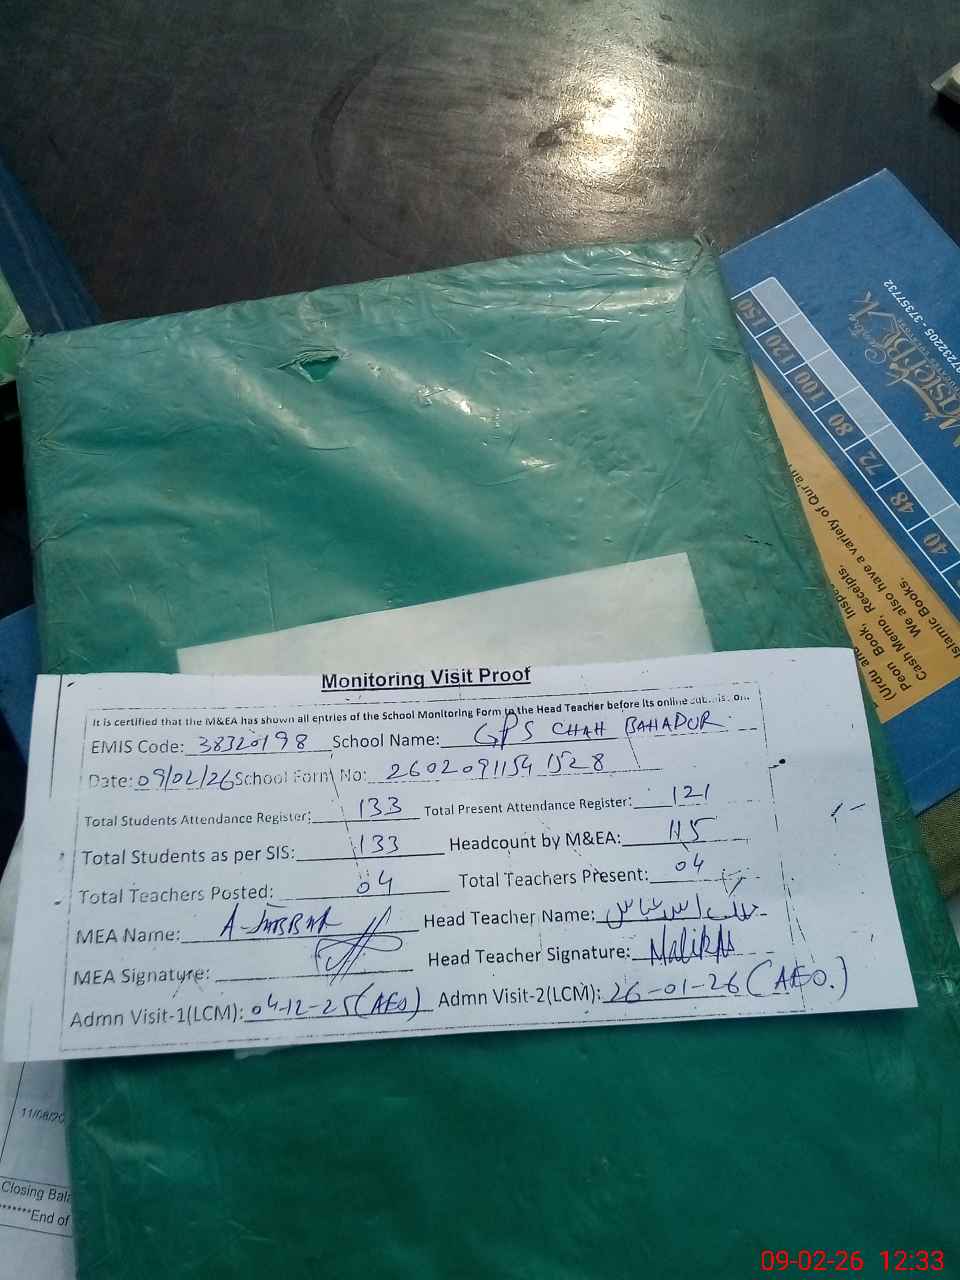 Monitoring Visit Proof
It is certified that the M&EA has shown all entries of the School Monitoring Form to the Head Teacher before its online
EMIS Code: 38320198 School Name: GPS CHAH BAHADUR
Date: 09/02/26 School Form No: 26020911541528
Total Students Attendance Register: 133 Total Present Attendance Register: 121
Total Students as per SIS: 133 Headcount by M&EA: 115
Total Teachers Posted: 04 Total Teachers Present: 04
MEA Name: A-JABBAR Head Teacher Name:
MEA Signature: Head Teacher Signature:
Admn Visit-1(LCM): 04-12-25 (AEO) Admn Visit-2(LCM): 26-01-26 (AEO.)
37232205 - 37357732
150
120
100
80
72
48
40
(Urdu and
Peon Book,
Cash Memo, Receipts,
We also have a variety of Qur'an
Islamic Books.
11/08/20
Closing Bal
*******End of
09-02-26 12:33